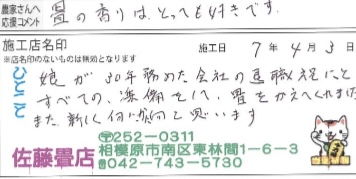 農家さんへ
応援コメント
畳の香りは、とっても好きです。
施工店名印
※店名印のないものは無効となります
施工日 7年4月3日
ひとこと
娘が30年務めた会社の退職祝にと
すべての、準備をして、畳をかえてくれました
また、新しく何に 思います
☎252-0311
佐藤畳店 相模原市南区東林間1-6-3
☎042-743-5730